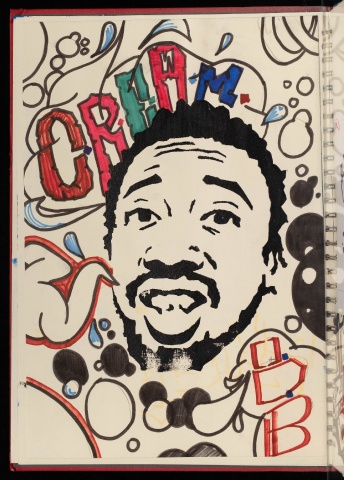 C.R.E.A.M.
O.
D.
B